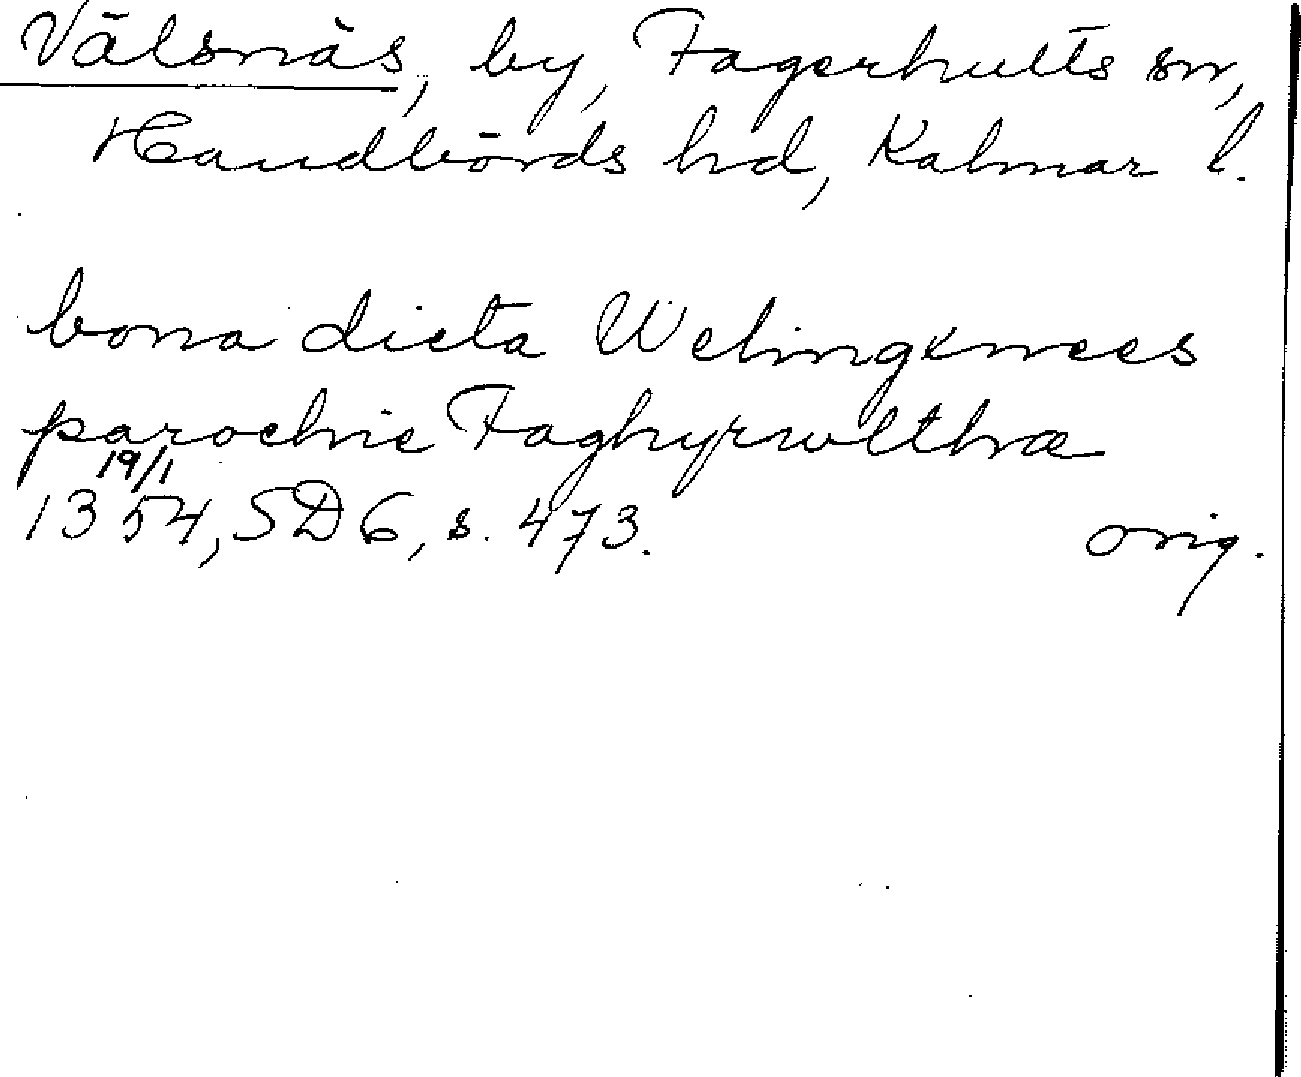 Välsnäs, by, Fagerhults sn,
Handbörds hd, Kalmar l.
bona dicta Welingxnees
parochie Faghyrwlthæ
19/1
1354, SD 6, s. 473. orig.